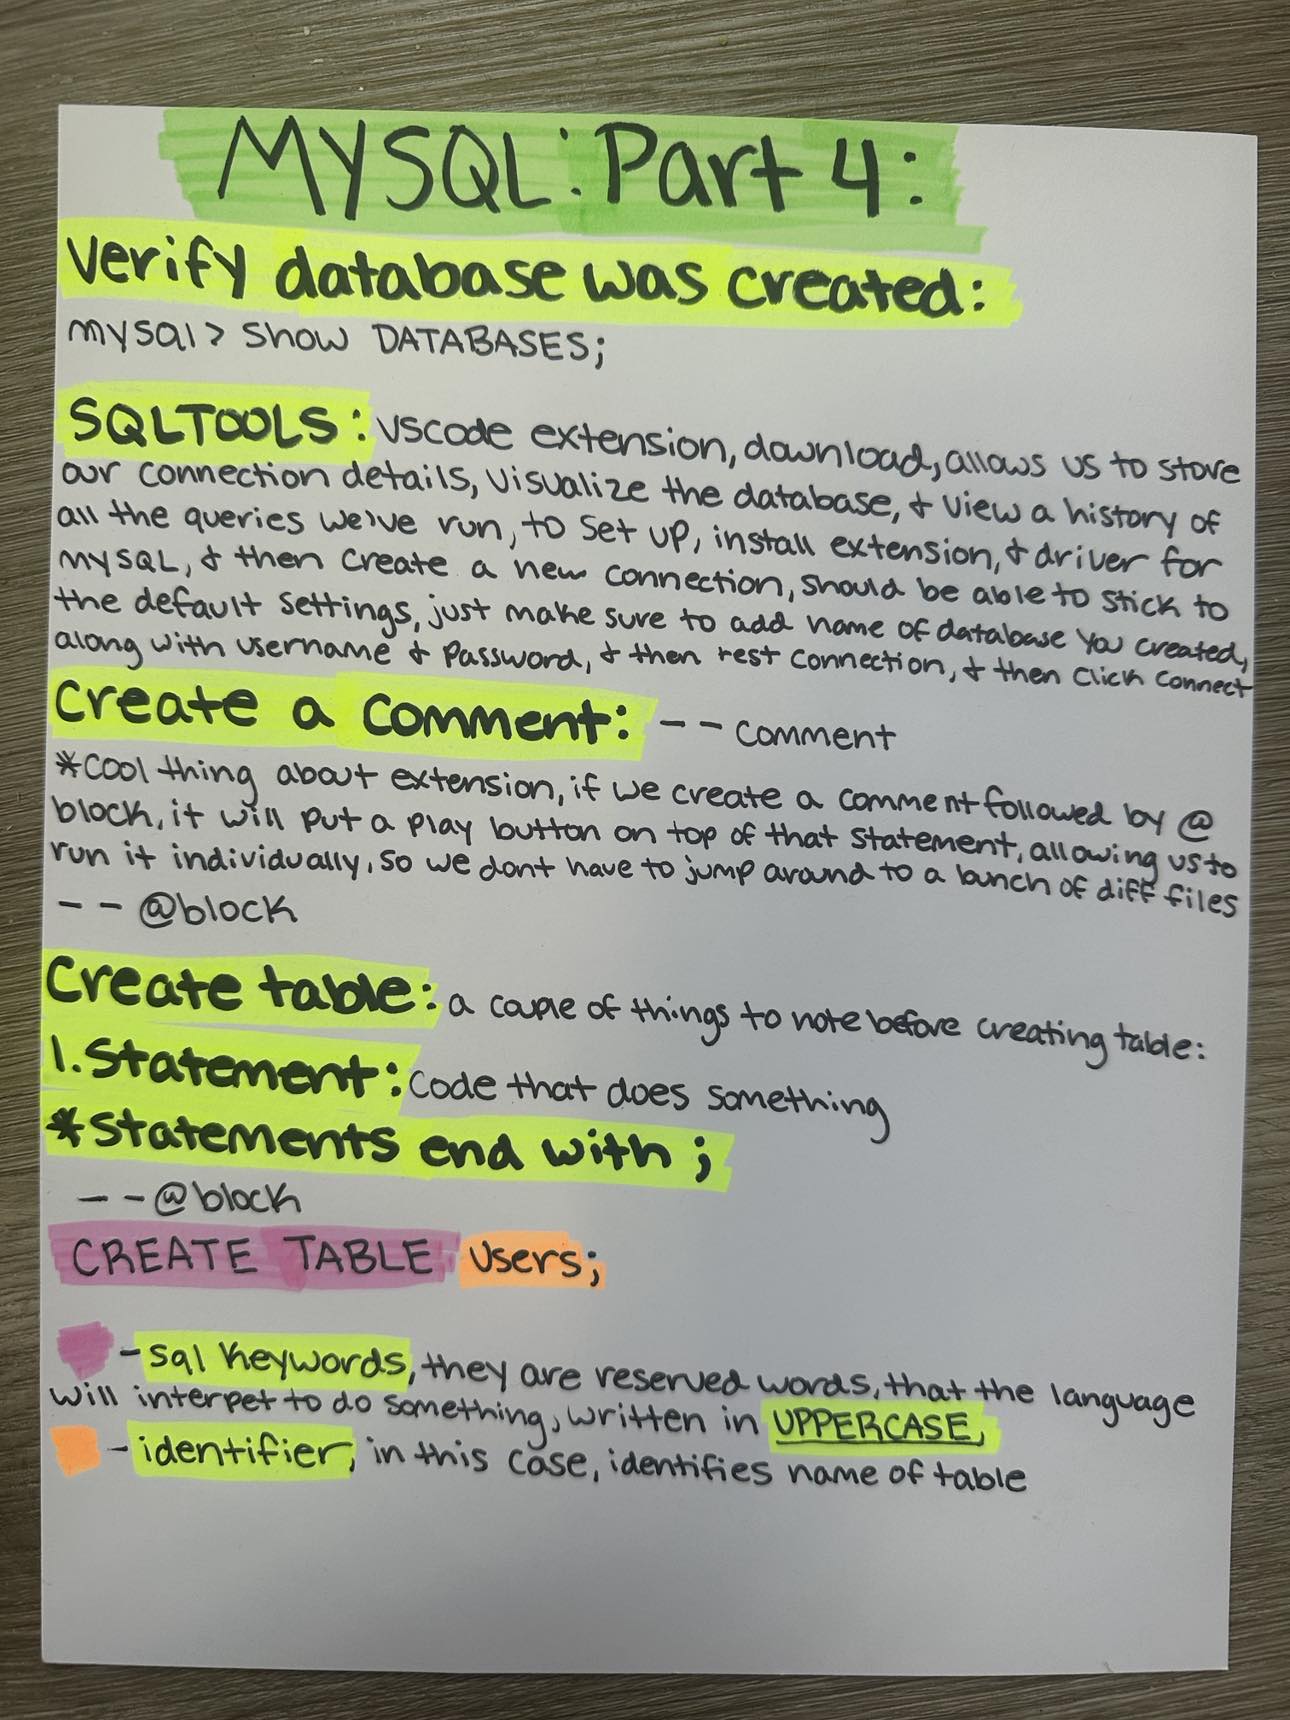 MYSQL: Part 4:
Verify database was created:
mysql> Show DATABASES;
SQLTOOLS: vscode extension, download, allows us to store
our connection details, visualize the database, & view a history of
all the queries we've run, to set up, install extension, & driver for
MYSQL, & then create a new connection, should be able to stick to
the default settings, just make sure to add name of database you created,
along with username & password, & then test connection, & then click connect
Create a comment: -- comment
*Cool thing about extension, if we create a comment followed by @
block, it will put a play button on top of that statement, allowing us to
run it individually, so we dont have to jump around to a bunch of diff files
-- @block
Create table: a couple of things to note before creating table:
1. Statement: code that does something
*Statements end with ;
--@block
CREATE TABLE Users;
- sql keywords, they are reserved words, that the language
will interpet to do something, written in UPPERCASE,
- identifier, in this case, identifies name of table